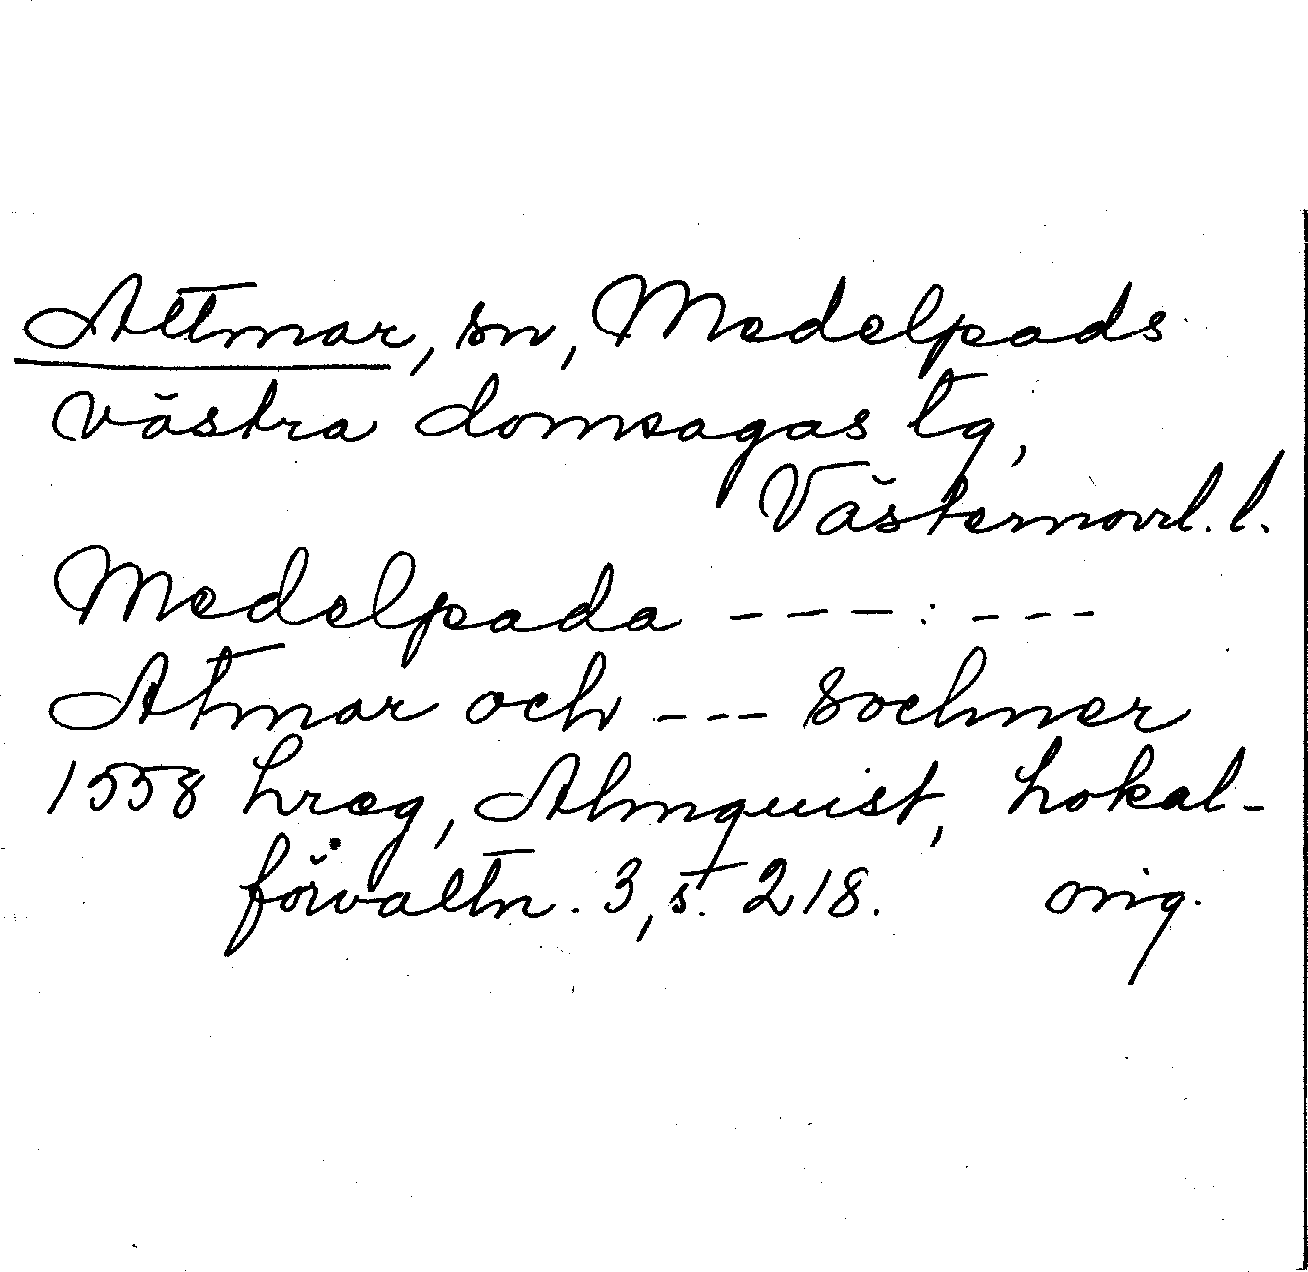 Attmar, sn, Medelpads
västra domsagas tg,
Västernorrl. l.
Medelpada --- : ---
Atmar och --- sochner
1558 hreg, Almquist, Lokal-
förvaltn. 3, s. 218. orig.